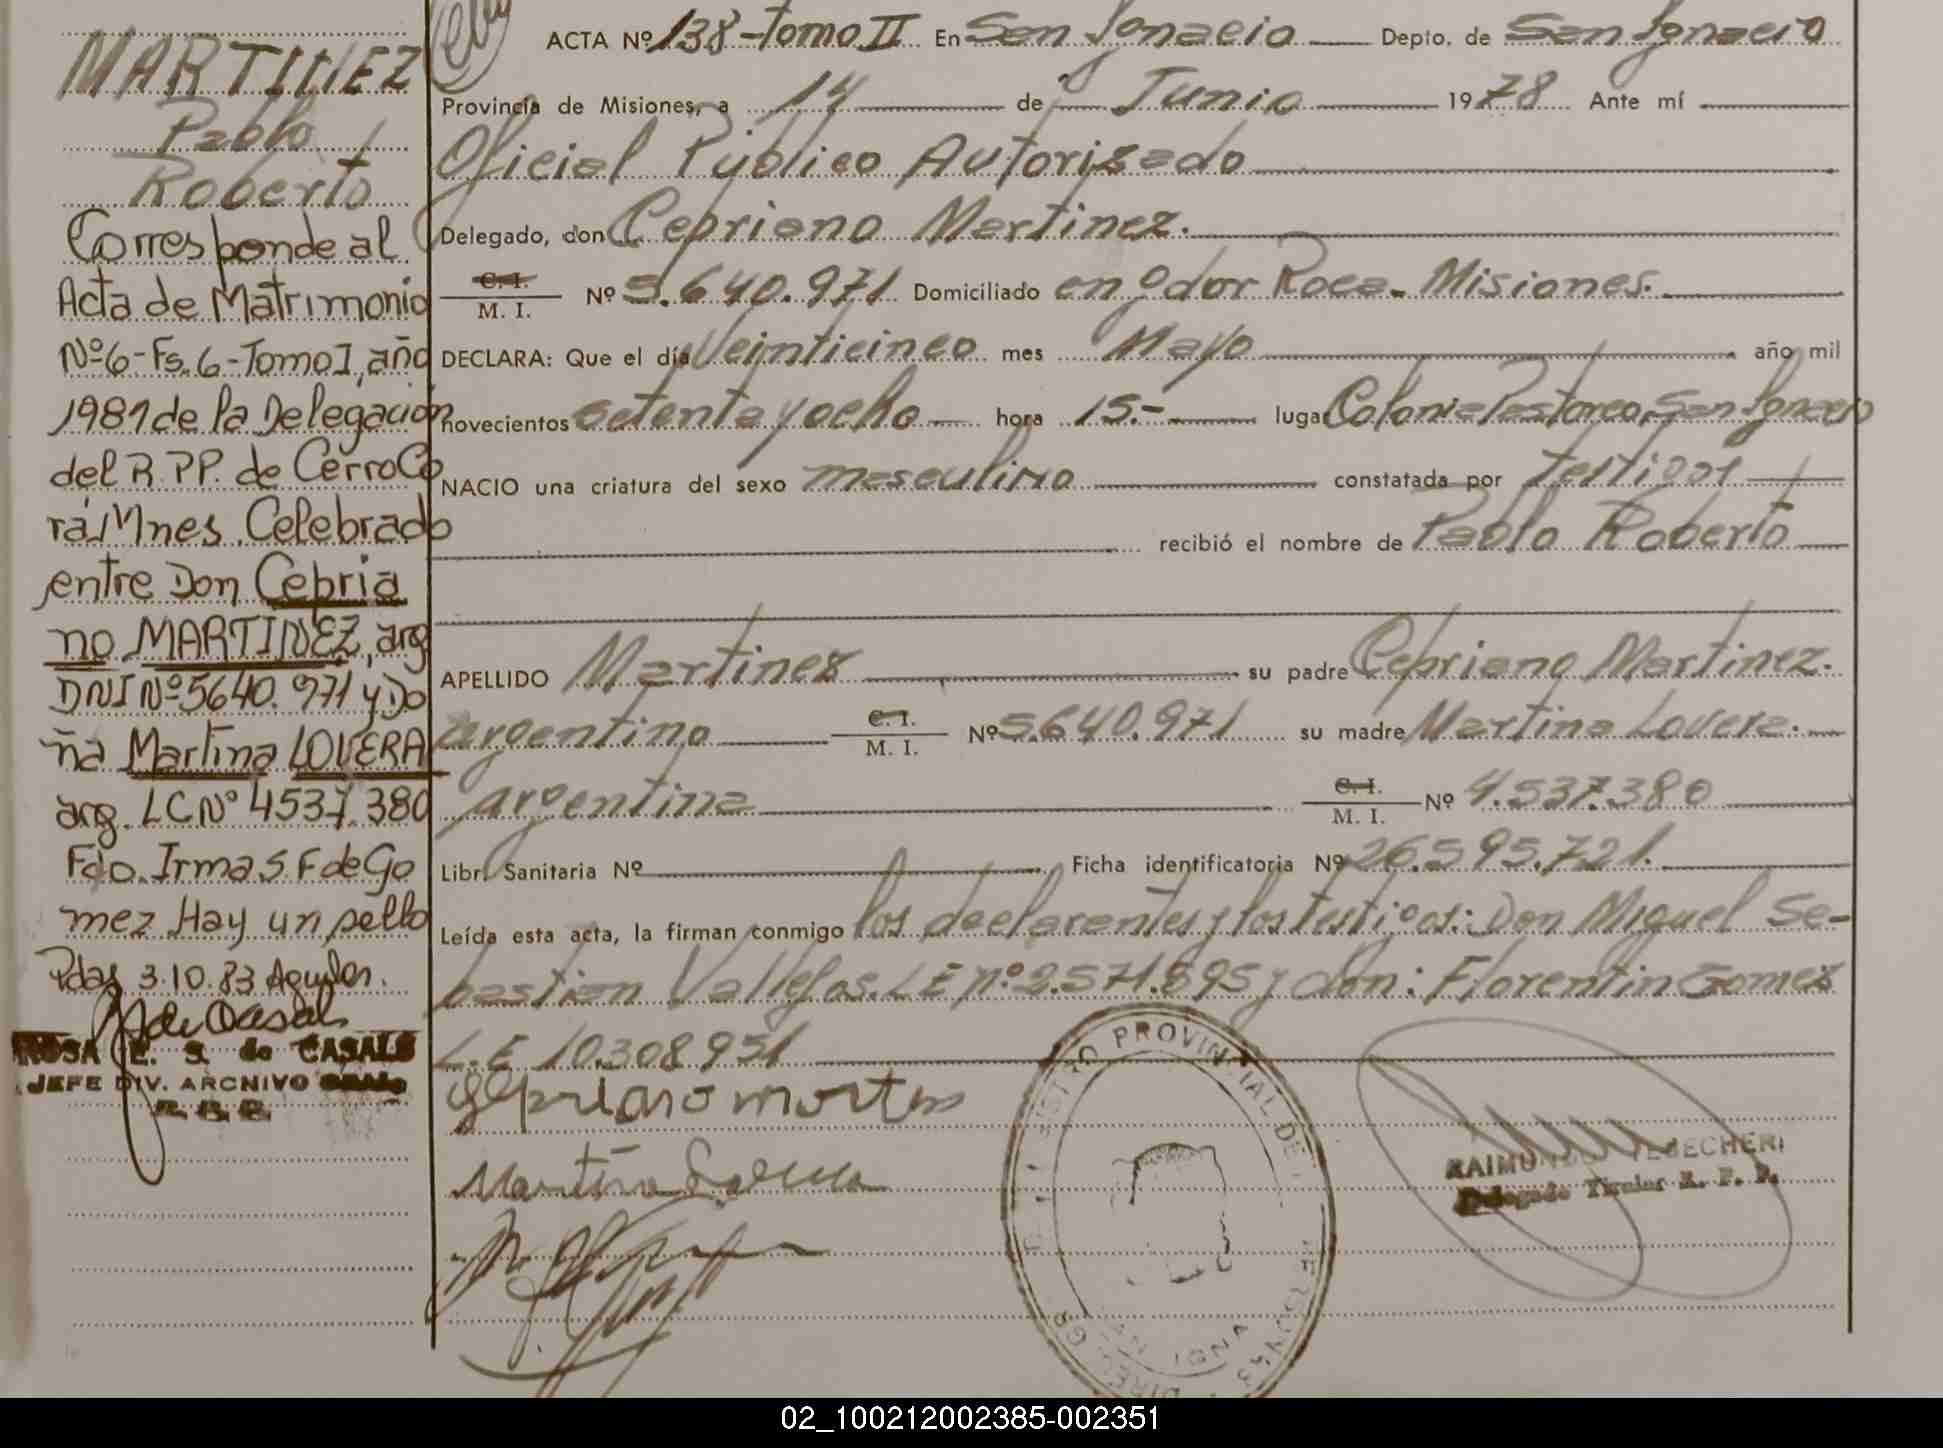 MARTINEZ
Pablo
Roberto
Corresponde al
Acta de Matrimonio
Nº6-Fs.6-Tomo I, año
1981 de la Delegación
del R.PP. de Cerro Co
rá, Mnes. Celebrado
entre Don Cepria
no MARTINEZ, arg
DNI Nº 5640.971 y Do
ña Martina LOVERA
arg. LC Nº 4537.380
Fdo. Irma S F de Go
mez Hay un sello
Pdas 3.10.83 Aguilar.
ROSA E. S. de CASALS
JEFE DIV. ARCHIVO GRAL.
ACTA Nº 138-Tomo II En San Ignacio Depto. de San Ignacio
Provincia de Misiones, a 14 de Junio 1978 Ante mí
Oficial Público Autorizado
Delegado, don Cepriano Martinez.
C. I.
M. I. Nº 5.640.971 Domiciliado en gdor Roca - Misiones.
DECLARA: Que el día Veinticinco mes Mayo año mil
novecientos setenta y ocho hora 15.- lugar Colonia Pastoreo, San Ignacio
NACIO una criatura del sexo masculino constatada por testigos
recibió el nombre de Pablo Roberto
APELLIDO Martinez su padre Cepriano Martinez.
argentino C. I. M. I. Nº 5.640.971 su madre Martina Lovera.
argentina C. I. M. I. Nº 4.537.380
Libr. Sanitaria Nº Ficha identificatoria Nº 26.595.721.
Leída esta acta, la firman conmigo los declarantes y los testigos: Don Miguel Se-
bastian Vallejos. LE nº. 2.571.895 y don: Florentin Gomez
L.E 10.308.951
Martina
REGISTRO PROVINCIAL DE
Delegado Titular R. P. P.
02_100212002385-002351